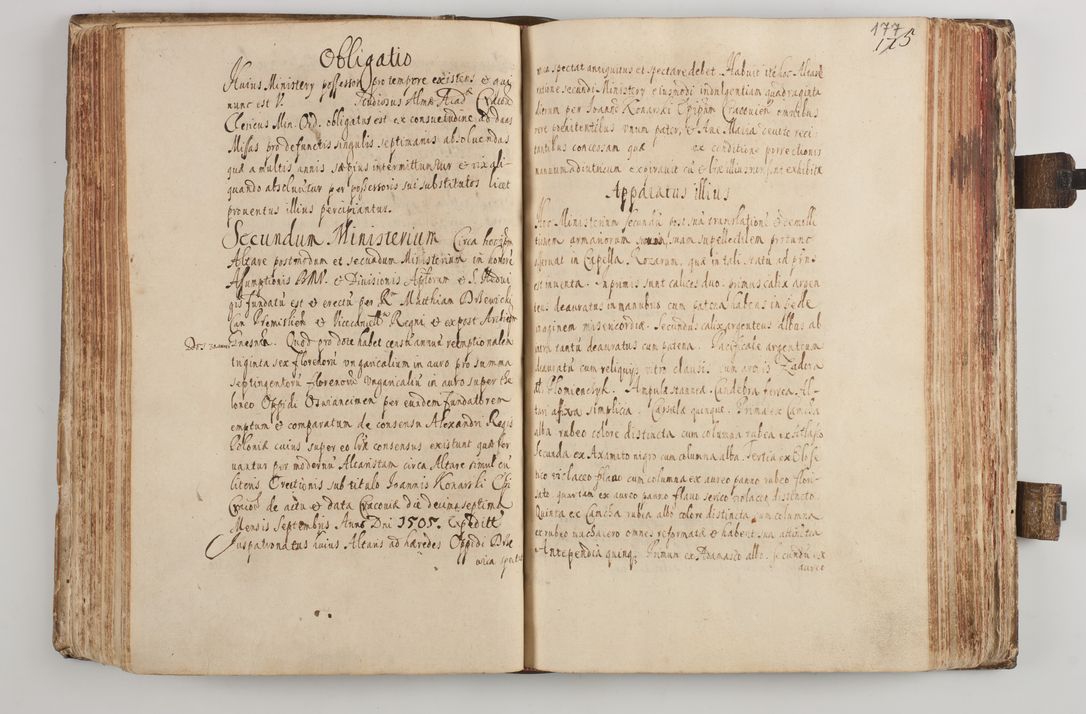 Obligatio
Huius Ministery possessor pro tempore existens & qui
nunc est V. Studiosus Almæ Acad. Cracou.
Clericus Min. Ord. obligatus est ex consuetudine ad duas
Missas pro defunctis singulis septimanis absoluendas
quæ a multis annis sæpius intermittuntur & vix ali-
quando absoluuntur per possessoris sui substitutos licet
prouentus illius percipiantur.
Secundum Ministerium Circa hoc ipsum
Altare postmodum et secundum Ministerium in honore
Assumptionis BMV. & Diuisionis Aptorum & S. Hedui
gis fundatũ est & erectũ per Rm Matthiam Drzewicki
Can Premislien & Vicecancell. Regni & ex post Archiepm
Dos Gnesne. Quod pro dote habet censũ annuũ reemptionalem
triginta sex florenorũ vngaricalium in auro pro summa
septingentorũ florenorũ Vngaricaliũ in auro super the
loneo Oppidi Osuiancimen per eundem fundatorem
emptum & comparatum de consensu Alexandri Regis
Poloniæ cuius super eo lræ consensus existunt quæ ser
uantur per modernũ Altaristam circa Altare simul cũ
literis Erectionis sub titulo Ioannis Konarski Epi
Cracou de actu & data Cracouiæ die decima septima
Mensis Septembris Anno Dni 1505. Expeditæ
Iuspatronatus huius Altaris ad hæredes Oppidi Drze
wica specta
177
175
wica spectat antiquitus et spectare debet. Habuit itẽ hoc Altare
ratione secundi Ministery eiusmodi indulgentiam quadraginta
dierum per Ioannẽ Konarski Epipum Cracouien omnibus
vere poenitentibus vnum pater, & Aue Maria deuote reci
tantibus concessam quæ ex conditione porrectionis
manuum adiutricum expirauit cũ & lræ illius non sint exhibitæ
Apparatus illius
Hoc Ministerium secundũ post suã translationẽ & demoli
tionem suam supellectilem pro tunc
in Capella Rozarum, quæ in tali statu ad pñs
est inuenta. Inprimis sunt calices duo. primus calix argen
teus deauratus in manubrio cum patena habens in pede
imaginem misericordiæ. Secundus calix argenteus albus ab
intra tantũ deauratus cum patena. Pacificale argenteum
deauratũ cum reliquijs vitro clausis. cum armis Zadora
Ampula stannea. Candebra ferrea Al
tari affixa simplicia. Casula quinque. Prima ex Camcha
alba rubeo colore distincta cum columna rubea ex
Secunda ex Axamito nigro cum columna alba. Tertia ex
uiolaceo flauo cum columna ex aureo panno rubeo flori
sato quartam ex aureo panno flauo serico violaceo distincto.
Quinta ex Camcha rubra albo colore distincta cum columna
ex rubeo omnes reformatæ & habent sua attinentia
Antependia quinq. Primum ex Adamasco albo. secundũ ex
aureo